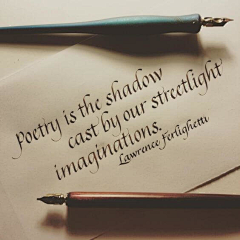 Poetry is the shadow
cast by our streetlight
imaginations.
Lawrence Ferlighetti